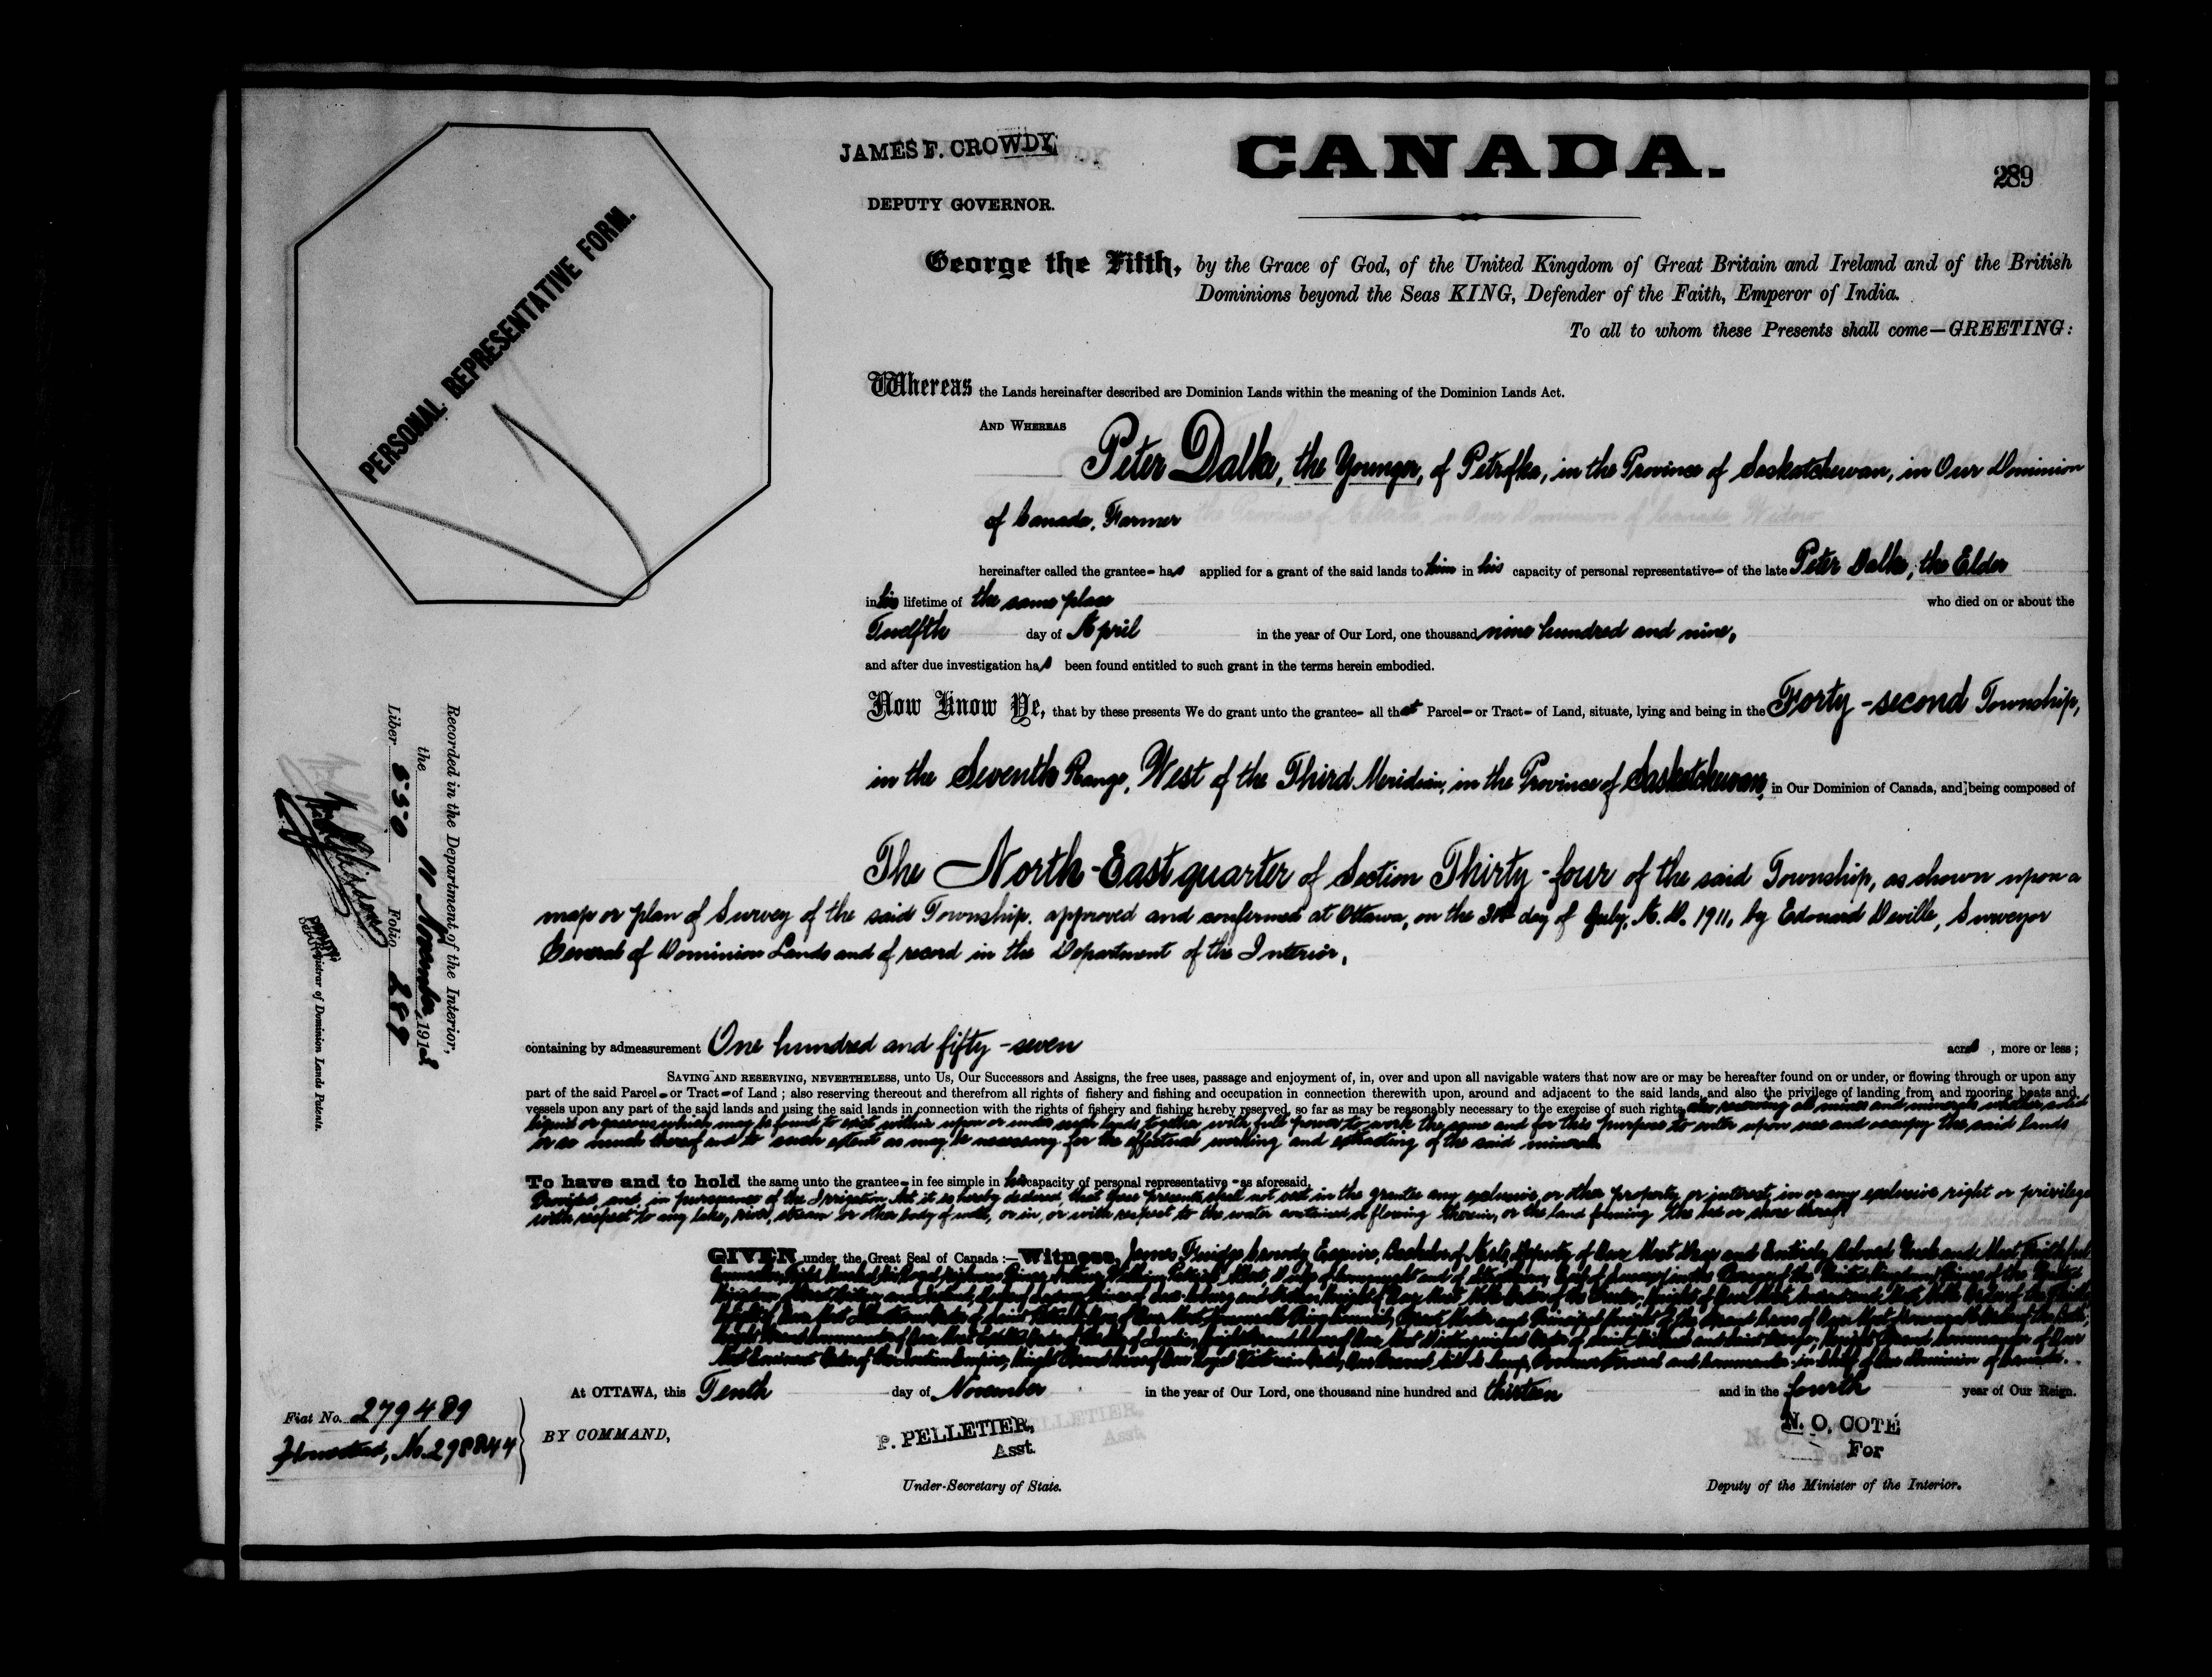 JAMES F. CROWDY
DEPUTY GOVERNOR.
CANADA.
289
PERSONAL REPRESENTATIVE FORM.
George the Fifth, by the Grace of God, of the United Kingdom of Great Britain and Ireland and of the British
Dominions beyond the Seas KING, Defender of the Faith, Emperor of India.
To all to whom these Presents shall come—GREETING:
Whereas the Lands hereinafter described are Dominion Lands within the meaning of the Dominion Lands Act.
AND WHEREAS
Peter Dalke, the Younger, of Petrofka, in the Province of Saskatchewan, in Our Dominion
of Canada, Farmer
hereinafter called the grantee- has applied for a grant of the said lands to him in his capacity of personal representative- of the late Peter Dalke, the Elder
in his lifetime of the same place who died on or about the
Twelfth day of April in the year of Our Lord, one thousand nine hundred and nine,
and after due investigation has been found entitled to such grant in the terms herein embodied.
Now Know Ye, that by these presents We do grant unto the grantee- all that Parcel- or Tract- of Land, situate, lying and being in the Forty-second Township,
in the Seventh Range, West of the Third Meridian, in the Province of Saskatchewan, in Our Dominion of Canada, and being composed of
The North-East quarter of Section Thirty-four of the said Township, as shown upon a
map or plan of Survey of the said Township, approved and confirmed at Ottawa, on the day of July, A.D. 1911, by Edouard Deville, Surveyor
General of Dominion Lands and of record in the Department of the Interior,
containing by admeasurement One hundred and fifty-seven acres, more or less;
SAVING AND RESERVING, NEVERTHELESS, unto Us, Our Successors and Assigns, the free uses, passage and enjoyment of, in, over and upon all navigable waters that now are or may be hereafter found on or under, or flowing through or upon any
part of the said Parcel- or Tract- of Land; also reserving thereout and therefrom all rights of fishery and fishing and occupation in connection therewith upon, around and adjacent to the said lands, and also the privilege of landing from and mooring boats and
vessels upon any part of the said lands and using the said lands in connection with the rights of fishery and fishing hereby reserved, so far as may be reasonably necessary to the exercise of such rights, also reserving all mines and minerals whether solid
liquid or gaseous which may be found to exist within upon or under such lands together with full power to work the same and for this purpose to enter upon use and occupy the said lands
or so much thereof and to such extent as may be necessary for the effectual working and extracting of the said minerals
To have and to hold the same unto the grantee- in fee simple in his capacity of personal representative- as aforesaid,
Provided, and in pursuance of the Irrigation Act it is hereby declared that these presents shall not vest in the grantee any exclusive or other property or interest in or any exclusive right or privilege
with respect to any lake, river, stream or other body of water, or in, or with respect to the water contained or flowing therein, or the land forming the bed or shore thereof
GIVEN under the Great Seal of Canada:—Witness, James Crowdy Esquire, Bachelor of Arts, Deputy of Our Most Dear and Entirely Beloved Uncle and Most Faithful
At OTTAWA, this Tenth day of November in the year of Our Lord, one thousand nine hundred and thirteen and in the fourth year of Our Reign.
BY COMMAND,
P. PELLETIER,
Asst.
Under-Secretary of State.
N. O. COTÉ
For
Deputy of the Minister of the Interior.
Fiat No. 279489
Homestead, No. 298844
Recorded in the Department of the Interior,
the November, 191
Liber 550 Folio 289
Registrar of Dominion Lands Patents.